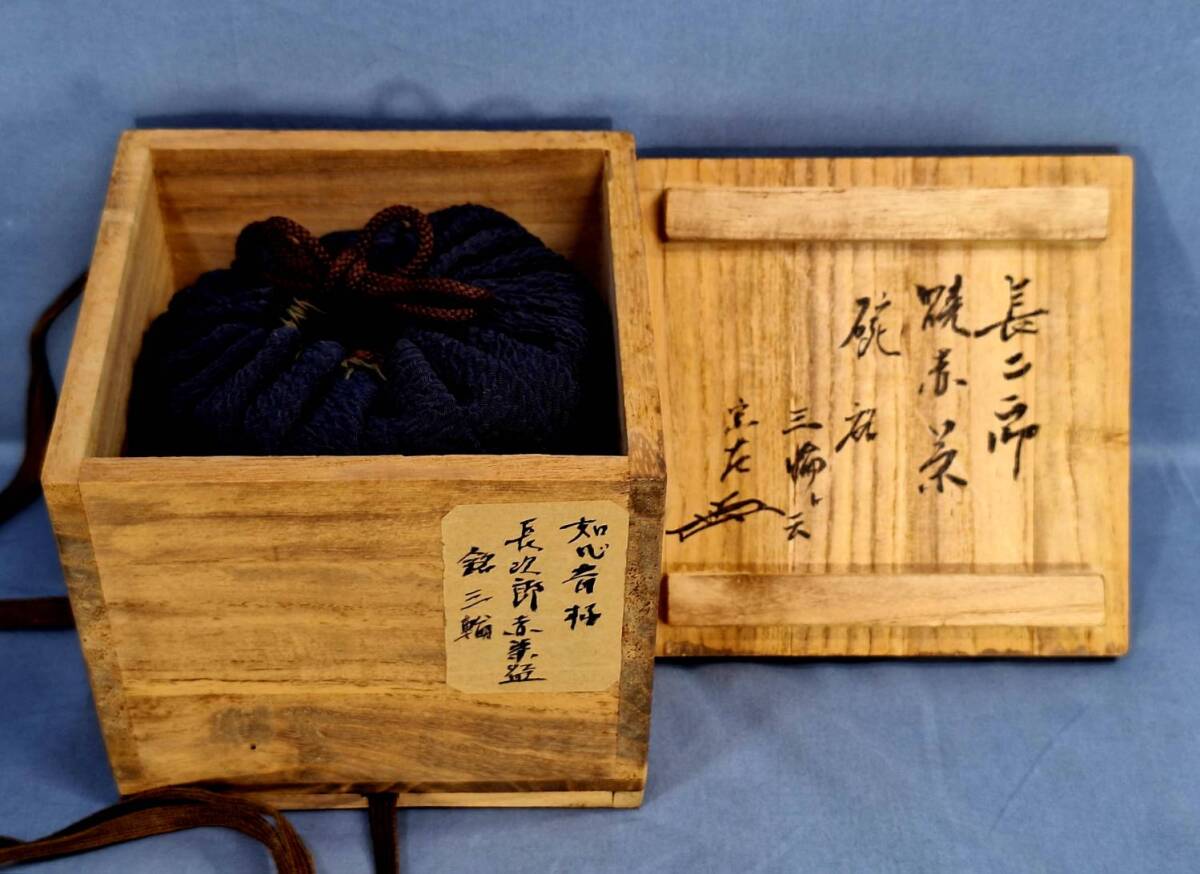 長二郎
焼赤茶
碗 名
三輪ト云
宗左
如心斎極
長次郎赤茶碗
銘三輪